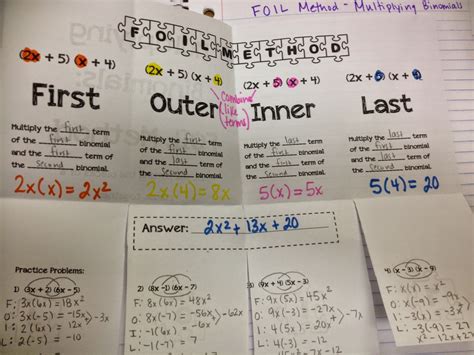 FOIL Method - Multiplying Binomials
FOIL METHOD
(2x + 5) (x + 4)
First
Multiply the first term
of the first binomial
and the first term of
the second binomial.
2x(x) = 2x²
(2x + 5) (x + 4)
Outer
Multiply the first term
of the first binomial
and the last term of
the second binomial.
2x(4) = 8x
Combine
(like
terms)
(2x + 5) (x + 4)
Inner
Multiply the last term
of the first binomial
and the first term of
the second binomial.
5(x) = 5x
(2x + 5) (x + 4)
Last
Multiply the last term
of the first binomial
and the last term of
the second binomial.
5(4) = 20
Answer: 2x² + 13x + 20
Practice Problems:
1) (3x + 2) (6x - 5)
F: 3x(6x) = 18x²
O: 3x(-5) = -15x > -3x
I: 2(6x) = 12x
2) (8x - 1) (6x - 7)
F: 8x(6x) = 48x²
O: 8x(-7) = -56x > -62x
I: -1(6x) = -6x
L: -1(-7) = 7
3) (9x + 4) (5x - 3)
F: 9x(5x) = 45x²
O: 9x(-3) = -27x > -7x
I: 4(5x) = 20x
L: 4(-3) = -12
4) (x - 3) (x - 9)
F: x(x) = x²
O: x(-9) = -9x